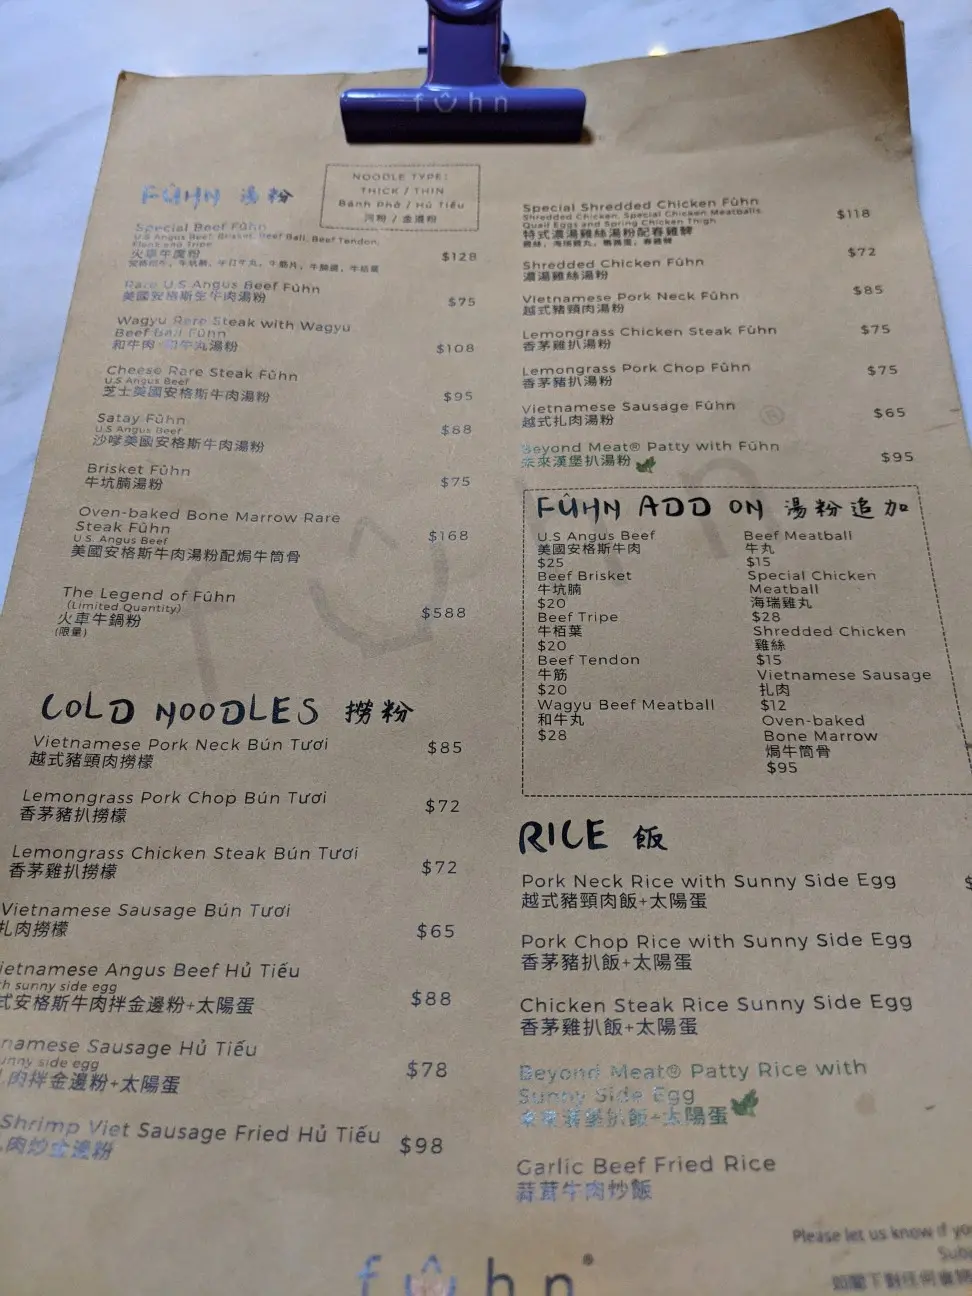 fûhn
FÛHN 湯粉
NOODLE TYPE:
THICK / THIN
Bánh Phở / Hủ Tiếu
河粉 / 金邊粉
Special Beef Fûhn
U.S Angus Beef, Brisket, Beef Ball, Beef Tendon,
Flank and Tripe
火車牛魔粉
$128
Rare U.S Angus Beef Fûhn
美國安格斯生牛肉湯粉
$75
Wagyu Rare Steak with Wagyu
Beef Ball Fûhn
和牛肉 和牛丸湯粉
$108
Cheese Rare Steak Fûhn
U.S Angus Beef
芝士美國安格斯牛肉湯粉
$95
Satay Fûhn
U.S Angus Beef
沙嗲美國安格斯牛肉湯粉
$88
Brisket Fûhn
牛坑腩湯粉
$75
Oven-baked Bone Marrow Rare
Steak Fûhn
U.S. Angus Beef
美國安格斯牛肉湯粉配焗牛筒骨
$168
The Legend of Fûhn
(Limited Quantity)
火車牛鍋粉
(限量)
$588
COLD NOODLES 撈粉
Vietnamese Pork Neck Bún Tươi
越式豬頸肉撈檬
$85
Lemongrass Pork Chop Bún Tươi
香茅豬扒撈檬
$72
Lemongrass Chicken Steak Bún Tươi
香茅雞扒撈檬
$72
Vietnamese Sausage Bún Tươi
扎肉撈檬
$65
ietnamese Angus Beef Hủ Tiếu
h sunny side egg
式安格斯牛肉拌金邊粉+太陽蛋
$88
namese Sausage Hủ Tiếu
unny side egg
肉拌金邊粉+太陽蛋
$78
Shrimp Viet Sausage Fried Hủ Tiếu
肉炒金邊粉
$98
Special Shredded Chicken Fûhn
Shredded Chicken, Special Chicken Meatballs,
Quail Eggs and Spring Chicken Thigh
特式濃湯雞絲湯粉配春雞髀
雞絲, 海瑞雞丸, 鵪鶉蛋, 春雞髀
$118
Shredded Chicken Fûhn
濃湯雞絲湯粉
$72
Vietnamese Pork Neck Fûhn
越式豬頸肉湯粉
$85
Lemongrass Chicken Steak Fûhn
香茅雞扒湯粉
$75
Lemongrass Pork Chop Fûhn
香茅豬扒湯粉
$75
Vietnamese Sausage Fûhn
越式扎肉湯粉
$65
Beyond Meat® Patty with Fûhn
未來漢堡扒湯粉
$95
FÛHN ADD ON 湯粉追加
U.S Angus Beef
美國安格斯牛肉
$25
Beef Brisket
牛坑腩
$20
Beef Tripe
牛栢葉
$20
Beef Tendon
牛筋
$20
Wagyu Beef Meatball
和牛丸
$28
Beef Meatball
牛丸
$15
Special Chicken
Meatball
海瑞雞丸
$28
Shredded Chicken
雞絲
$15
Vietnamese Sausage
扎肉
$12
Oven-baked
Bone Marrow
焗牛筒骨
$95
RICE 飯
Pork Neck Rice with Sunny Side Egg
越式豬頸肉飯+太陽蛋
$
Pork Chop Rice with Sunny Side Egg
香茅豬扒飯+太陽蛋
Chicken Steak Rice Sunny Side Egg
香茅雞扒飯+太陽蛋
Beyond Meat® Patty Rice with
Sunny Side Egg
未來漢堡扒飯+太陽蛋
Garlic Beef Fried Rice
蒜茸牛肉炒飯
Please let us know if yo
Subj
如閣下對任何食物
fûhn®